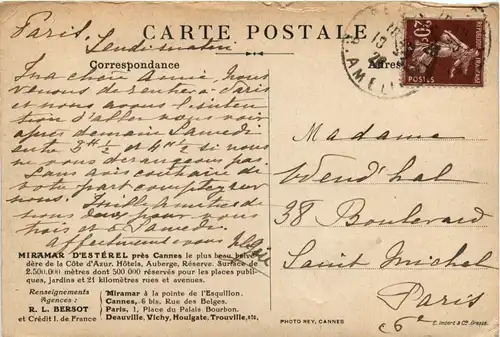 CARTE POSTALE
Correspondance
Adresse
Paris,
Ma chère Amie, Nous
venons de rentrer à Paris
et nous avons l'inten
tion d'aller vous voir
après demain Samedi
entre 3 h ½ et 4 h ½ si nous
ne vous dérangeons pas.
Sans avis contraire de
votre part comptez sur
nous.
Affectueusement
Madame
Wend'hal
38 Boulevard
Saint Michel
Paris
6e
20c
REPUBLIQUE FRANÇAISE
POSTES
MIRAMAR D'ESTÉREL près Cannes le plus beau belvé-
dère de la Côte d'Azur. Hôtels, Auberge, Réserve. Surface de
2.500.000 mètres dont 500 000 réservés pour les places publi-
ques, jardins et 21 kilomètres rues et avenues.
Renseignements
Agences :
R. L. BERSOT
et Crédit I. de France
Miramar à la pointe de l'Esquillon.
Cannes, 6 bis, Rue des Belges.
Paris, 1, Place du Palais Bourbon.
Deauville, Vichy, Houlgate, Trouville, etc,
PHOTO REY, CANNES
E. Imbert & Cie Grasse.